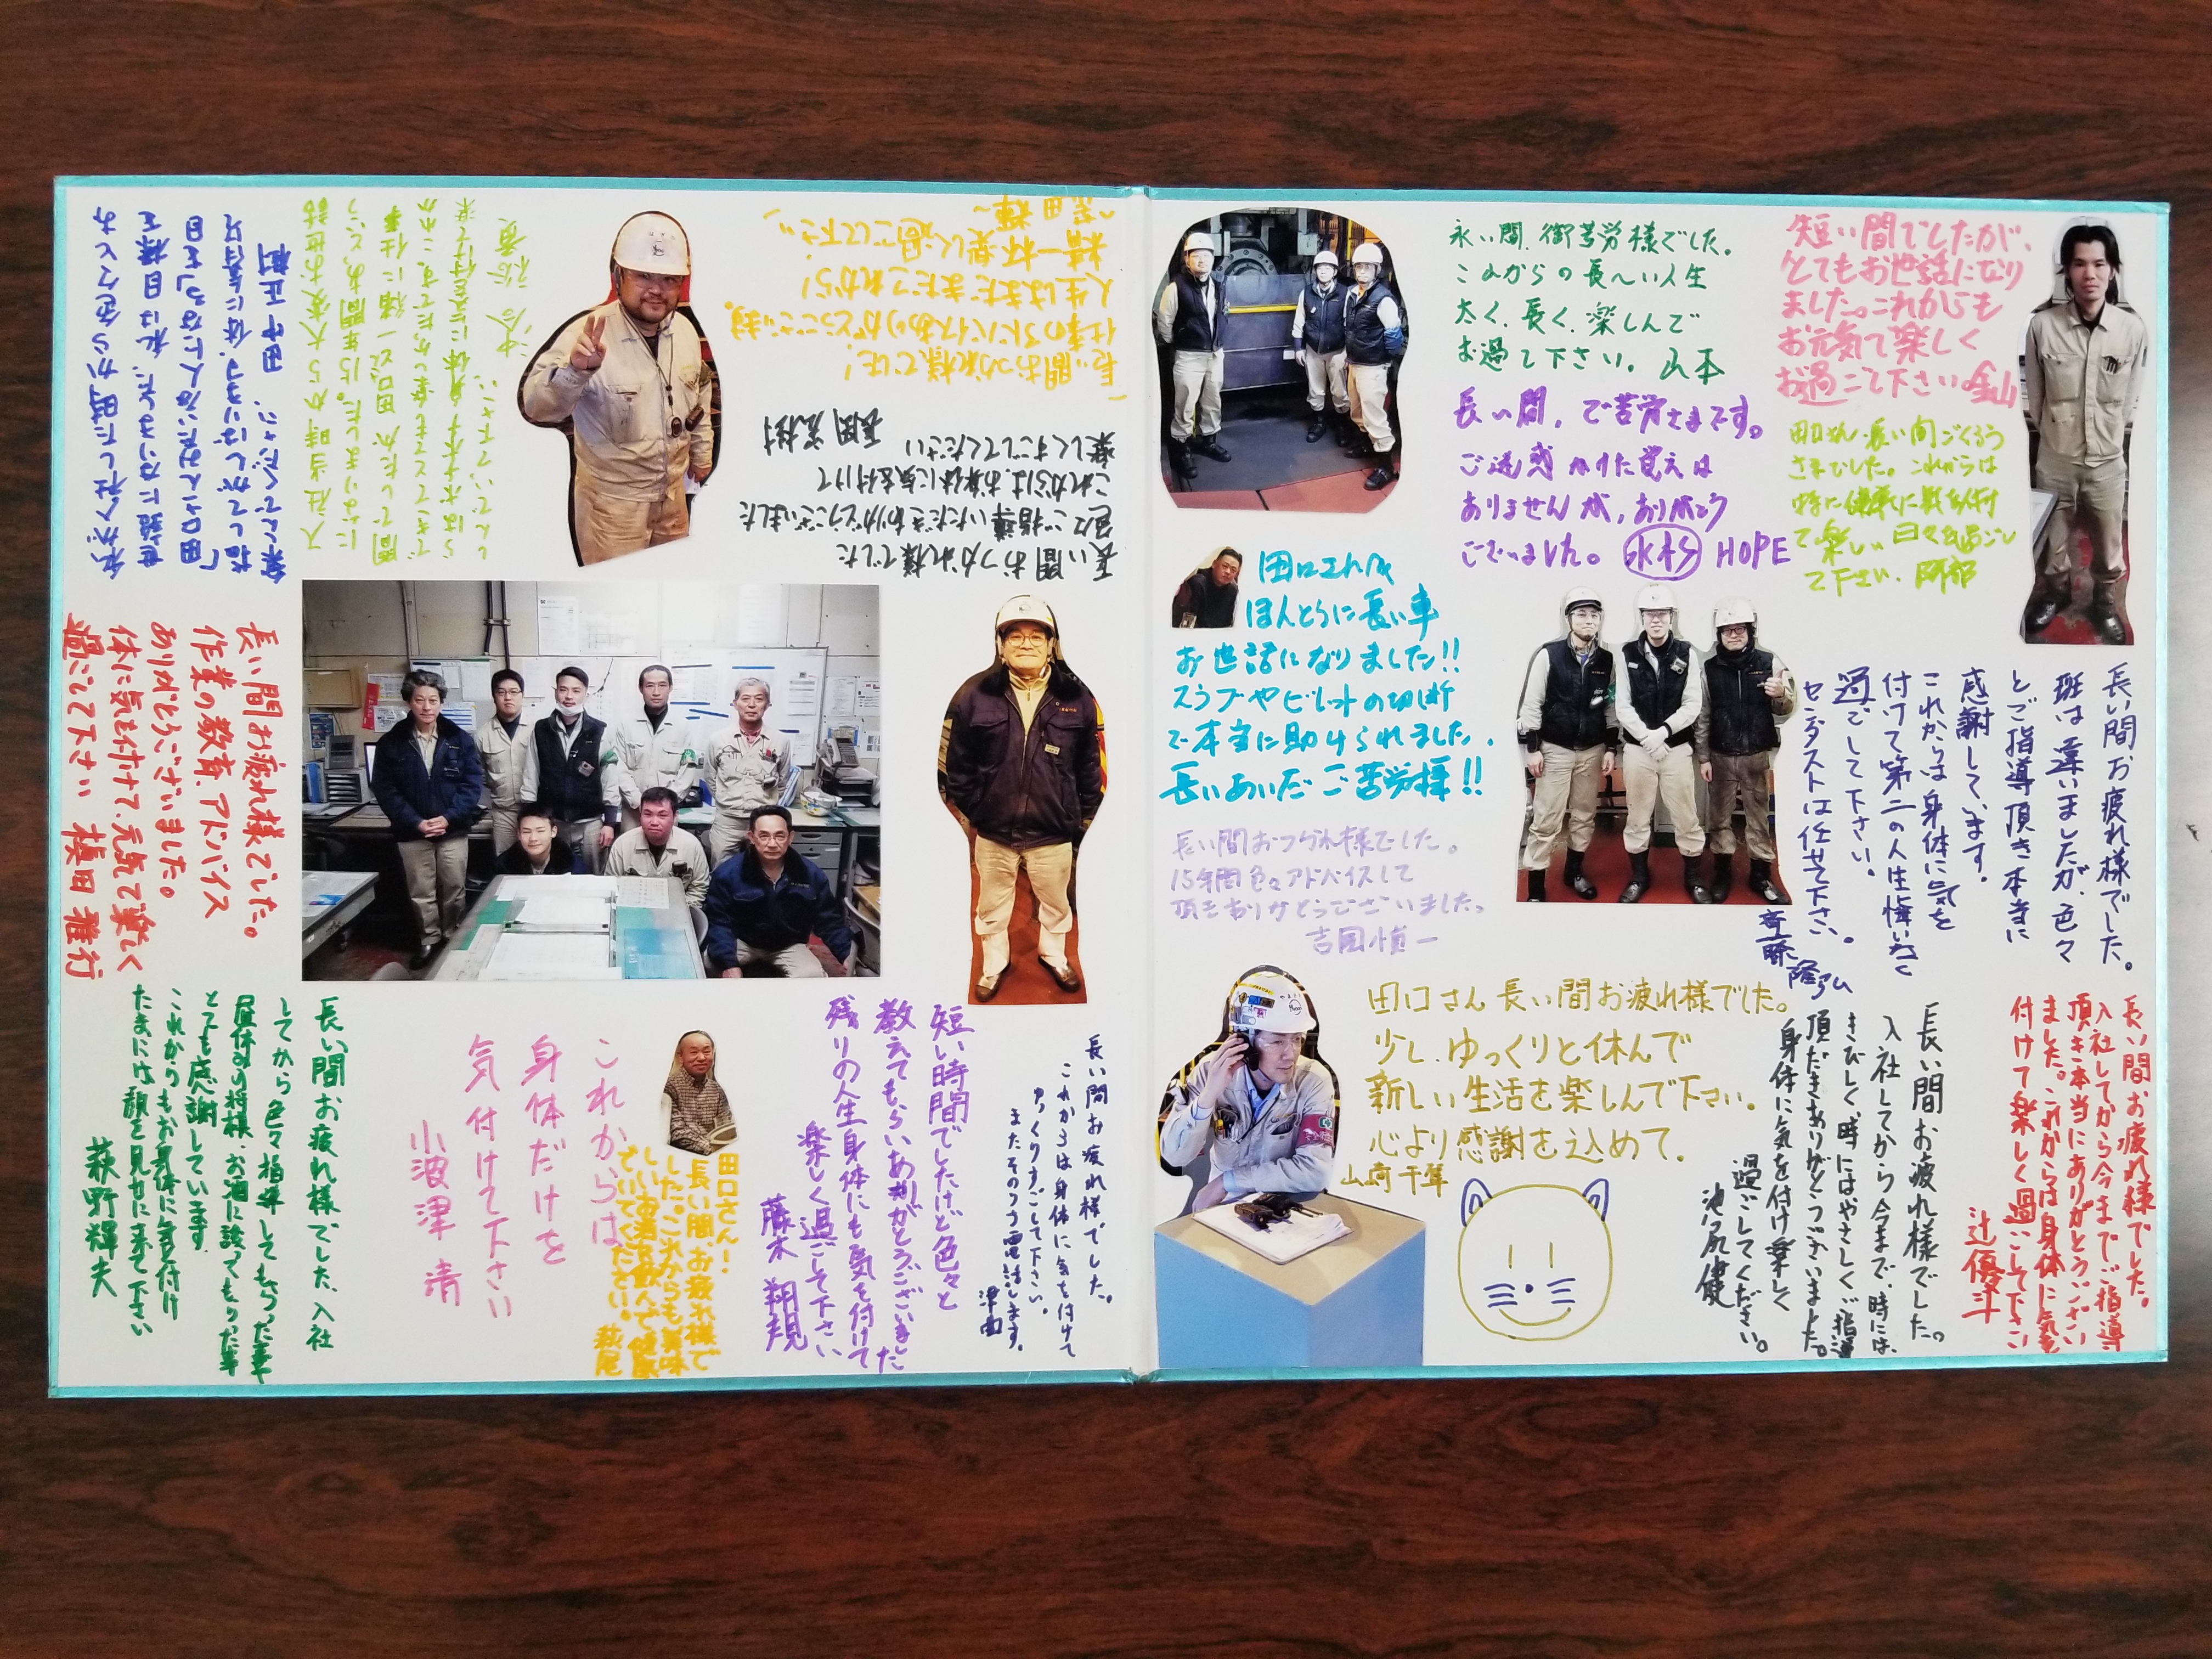 私が入社した時から色々とお
世話になりました。私は目標を
「田口さんみたいな人になる」を目
指してがんばります。体に気を付け
楽しんでください。 田中正樹
入社当時から大変お世話
になりました。15年間ありがとう
らはお体に気を付けて楽
しんでいて下さい。
長い間おつかれ様でした!
仕事のアドバイスありがとうございます。
人生はまだまだこれから!
精一杯楽しく過ごして下さい。
長い間おつかれ様でした
色々ご指導いただきありがとうございました
これからはお身体に気を付けて
楽しくすごしてください
長い間お疲れ様でした。
作業の教育、アドバイス
ありがとうございました。
体に気を付けて、元気で楽しく
過ごして下さい 横田雅行
長い間お疲れ様でした。入社
してから色々指導してもらった事
昼休みの将棋、お酒に誘ってもらった事
とても感謝しています。
これからもお気体に気を付け
たまには顔を見せに来て下さい
萩野輝夫
これからは
身体だけを
気付けて下さい
小波津 清
田口さん!
長い間お疲れ様で
した。これからも美味
しいお酒を飲んで健康
でいてください。萩尾
短い時間でしたけど色々と
教えてもらいありがとうございました
残りの人生身体にも気を付けて
楽しく過ごして下さい
藤木 翔規
長い間お疲れ様でした。
これからは身体に気を付けて
ゆっくりすごして下さい。
またそのうち電話します。
津曲
永い間、御苦労様でした。
これからの長〜い人生
太く、長く、楽しんで
お過し下さい。 山本
長い間、ご苦労さまです。
ご迷惑かけた覚えは
ありませんが、ありがとう
ございました。 HOPE
短い間でしたが、
とてもお世話になり
ました。これからも
お元気で楽しく
お過ごし下さい。金山
田口さん、長い間ごくろう
さまでした。これからは
特に健康に気を付け
て楽しい日々を過ごし
て下さい。阿部
田口さんへ
ほんとうに長い事
お世話になりました!!
スラブやビレットの切断
で本当に助けられました。
長いあいだご苦労様!!
長い間おつかれ様でした。
15年間色々アドバイスして
頂きありがとうございました。
吉岡慎一
長い間お疲れ様でした。
班は違いましたが、色々
とご指導頂き本当に
感謝しています。
これからは身体に気を
付けて第二の人生悔いなく
過ごして下さい。
センダストは任せて下さい。
田口さん長い間お疲れ様でした。
少し、ゆっくりと休んで
新しい生活を楽しんで下さい。
心より感謝を込めて。
長い間お疲れ様でした。
入社してから今まで、時には、
きびしく、時にはやさしくご指導
頂だきありがとうございました。
身体に気を付け楽しく
過ごしてください。
池尻健
長い間お疲れ様でした。
入社してから今までご指導
頂き本当にありがとうござい
ました。これからは身体に気を
付けて楽しく過ごして下さい
辻優斗